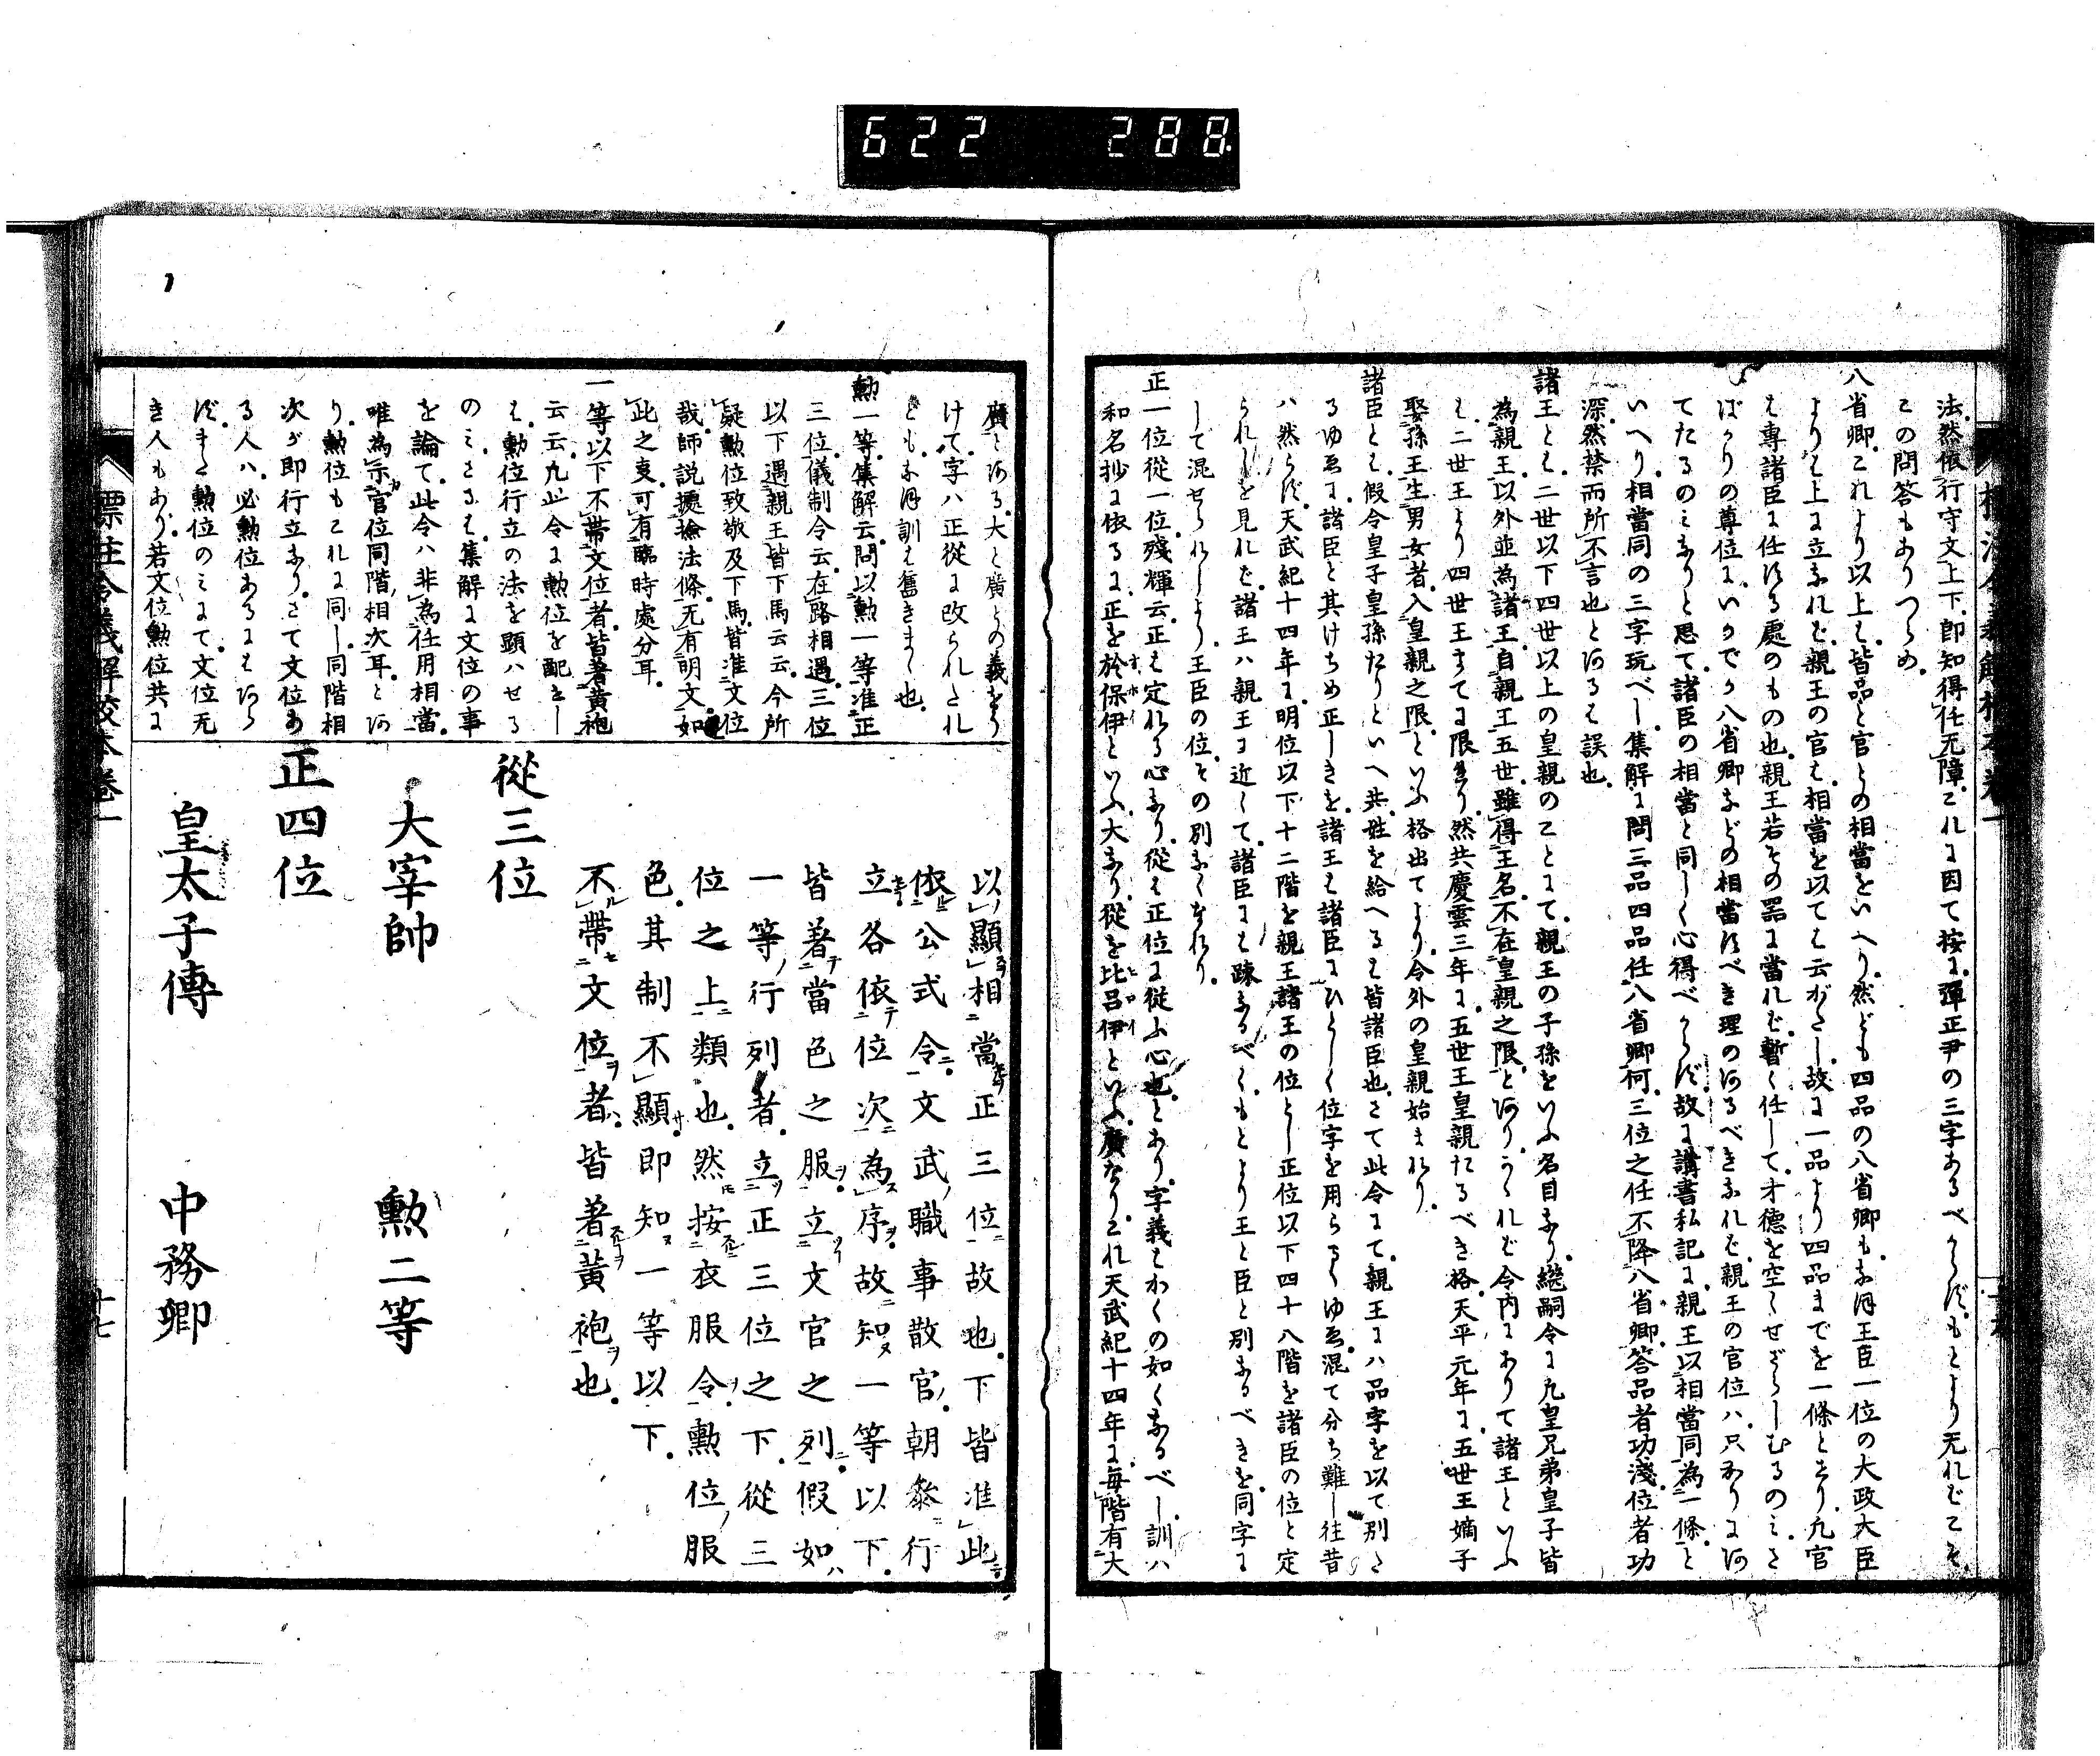 622 288
法。然依行守文上下。即知得任无障。これに因て按に。彈正尹の三字あるべからず。もとより无ればこそ。
この問答もありつらめ。
八省卿。これより以上は。皆品と官との相當をいへり。然ども四品の八省卿も。なほ王臣一位の大政大臣
よりは上に立なれど。親王の官は。相當を以ては云がたし。故に一品より四品までを一條とせり。凡官
は專諸臣に任ずる處のもの也。親王若その器に當れば。暫く任して。才德を空くせざらしむるのみ。さ
ばかりの尊位に。いかでか八省卿などの相當すべき理のあるべきなれど。親王の官位ハ。只かりにあ
てたるのみなりと思て。諸臣の相當と同しく心得べからず。故に講書私記に。親王以相當同為一條と
いへり。相當同の三字玩べし。集解に問三品四品任八省卿何。三位之任不降八省卿。答品者功淺。位者功
深。然禁而所不言也とあるは誤也。
諸王とは。二世以下四世以上の皇親のことにて。親王の子孫をいふ名目なり。繼嗣令に凡皇兄弟皇子皆
為親王。以外並為諸王。自親王五世。雖得王名。不在皇親之限。とあり。かゝれど令内にありて諸王といふ
は。二世王より四世王までに限れり。然共慶雲三年に。五世王皇親たるべき格。天平元年に。五世王嫡子
娶孫王。生男女者。入皇親之限。といふ格出てより。令外の皇親始まれり。
諸臣とは。假令皇子皇孫たりといへ共。姓を給へるは皆諸臣也。さて此令にて。親王にハ品字を以て別さ
るゆゑに。諸臣と其けぢめ正しきを。諸王は諸臣にひとしく位字を用らるゝゆゑ。混て分ち難し。往昔
ハ然らず。天武紀十四年に。明位以下十二階を親王諸王の位とし正位以下四十八階を諸臣の位と定
られしを見れば。諸王ハ親王に近くて。諸臣には疎なるべく。もとより王と臣と別あるべきを。同字に
して混せられしより。王臣の位その別なくなれり。
正一位從一位。殘輝云。正は定れる心なり。從は正位に從ふ心也。とあり。字義はかくの如くなるべし。訓ハ
和名抄に依るに。正を於保伊といふ。大なり。從を比呂伊といふ。廣なり。これ天武紀十四年に。每階有大
廣とある。大と廣との義をう
けて。字ハ正從に改られたれ
ども。なほ訓は舊きまゝ也。
勳一等。集解云。問以勳一等准正
三位。儀制令云。在路相遇。三位
以下遇親王皆下馬云云。今所
疑勳位致敬及下馬。皆准文位
哉。師説據檢法條。无有明文。如
此之変。可有臨時處分耳。
一等以下不帶文位者。皆著黄袍
云云。凡此令に勳位を配せし
は。勳位行立の法を顯ハせる
のミ。さるを集解に文位の事
を論て。此令ハ非為任用相當。
唯為示官位同階相次耳。とあ
り。勳位もこれに同し。同階相
次が即行立なり。さて文位あ
る人ハ。必勳位あるにはあら
ず。また勳位のミにて。文位无
き人もあり。若文位勳位共に
以顯相當正三位故也。下皆准此
依公式令。文武職事散官。朝參行
立各依位次為序。故知一等以下。
皆著當色之服。立文官之列。假如
一等行列者。立正三位之下。從三
位之上類也。然按衣服令。勳位服
色。其制不顯。即知一等以下。
不帶文位者。皆著黄袍也。
從三位
大宰帥 勳二等
正四位
皇太子傅 中務卿
標注令義解校本卷一
十七